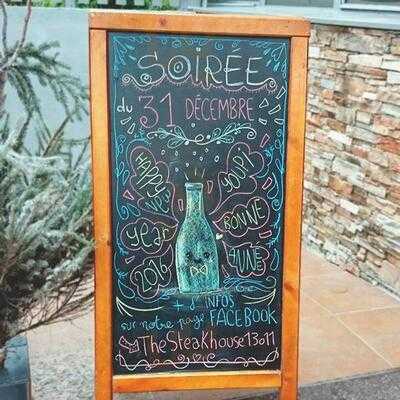 SOIREE
du 31 DÉCEMBRE
HAPPY
YOUPI
year
BONNE
2016
+ d'INFOS
sur notre page FACEBOOK
TheSteakhouse13011